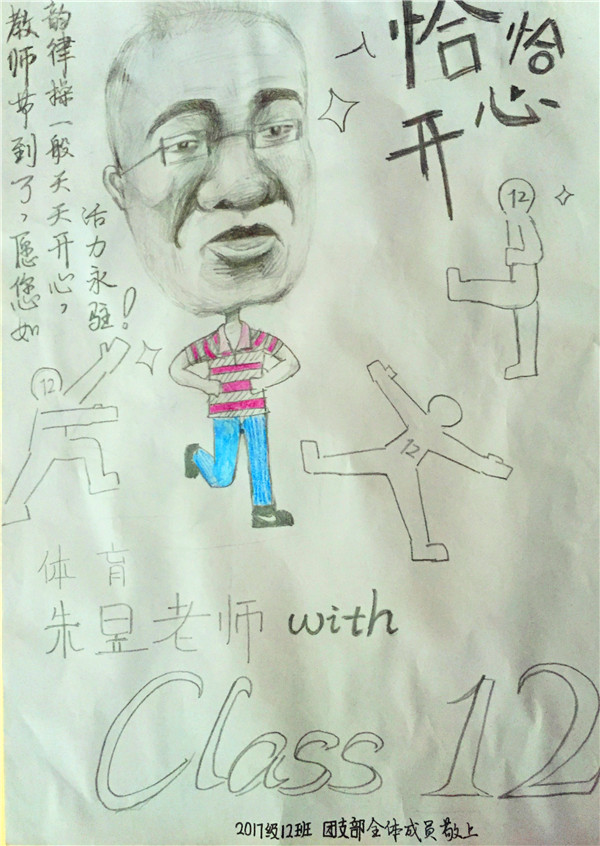 教师节到了，愿您如
韵律操一般天天开心，
活力永驻！
恰恰
开心
12
12
12
体育
朱昱老师 with
Class 12
2017级12班 团支部全体成员敬上